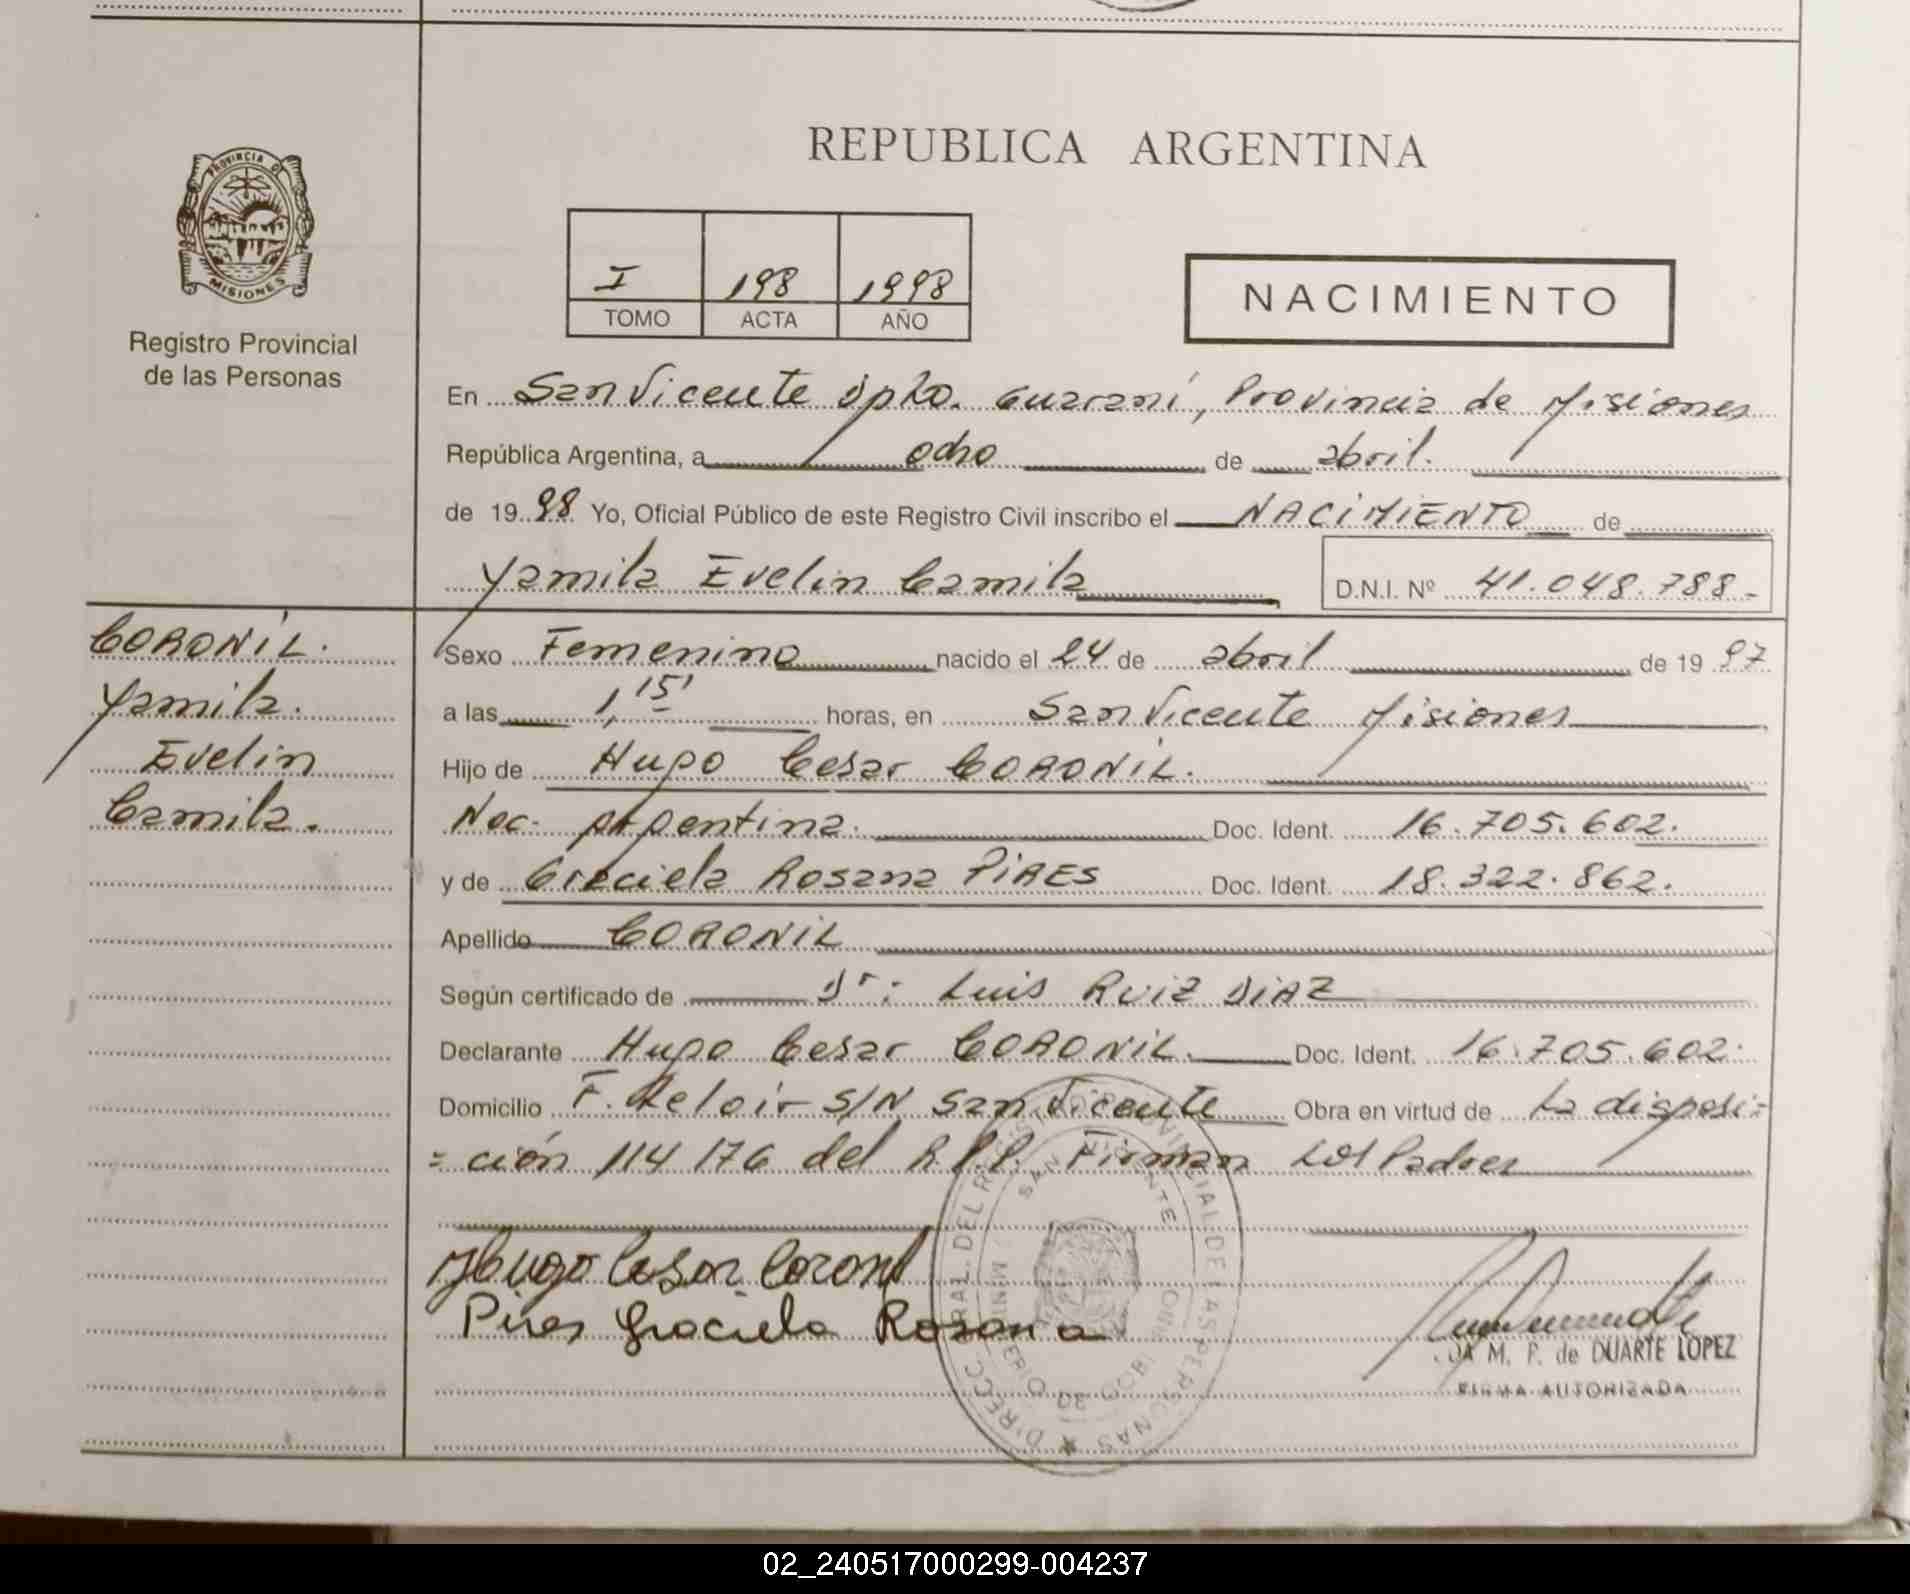 REPUBLICA ARGENTINA
PROVINCIA DE
MISIONES
Registro Provincial
de las Personas
I 198 1998
TOMO ACTA AÑO
NACIMIENTO
En San Vicente Dpto. Guaraní, Provincia de Misiones
República Argentina, a ocho de abril.
de 1998 Yo, Oficial Público de este Registro Civil inscribo el NACIMIENTO de
Yamila Evelin Camila D.N.I. Nº 41.048.788-
CORONIL.
Yamila.
Evelin
Camila.
Sexo Femenino nacido el 24 de abril de 1997
a las 1,15' horas, en San Vicente Misiones
Hijo de Hugo Cesar CORONIL.
Nac. Argentina. Doc. Ident. 16.705.602.
y de Graciela Rosana PIRES Doc. Ident. 18.322.862.
Apellido CORONIL
Según certificado de Dr: Luis RUIZ DIAZ
Declarante Hugo Cesar CORONIL. Doc. Ident. 16.705.602.
Domicilio F. Reloir S/N San Vicente Obra en virtud de La disposi=
=ción 114/76 del R.P.P. Firman Los Padres
Hugo Cesar Coronil
Pires Graciela Rosana
M. P. de DUARTE LOPEZ
FIRMA AUTORIZADA
02_240517000299-004237